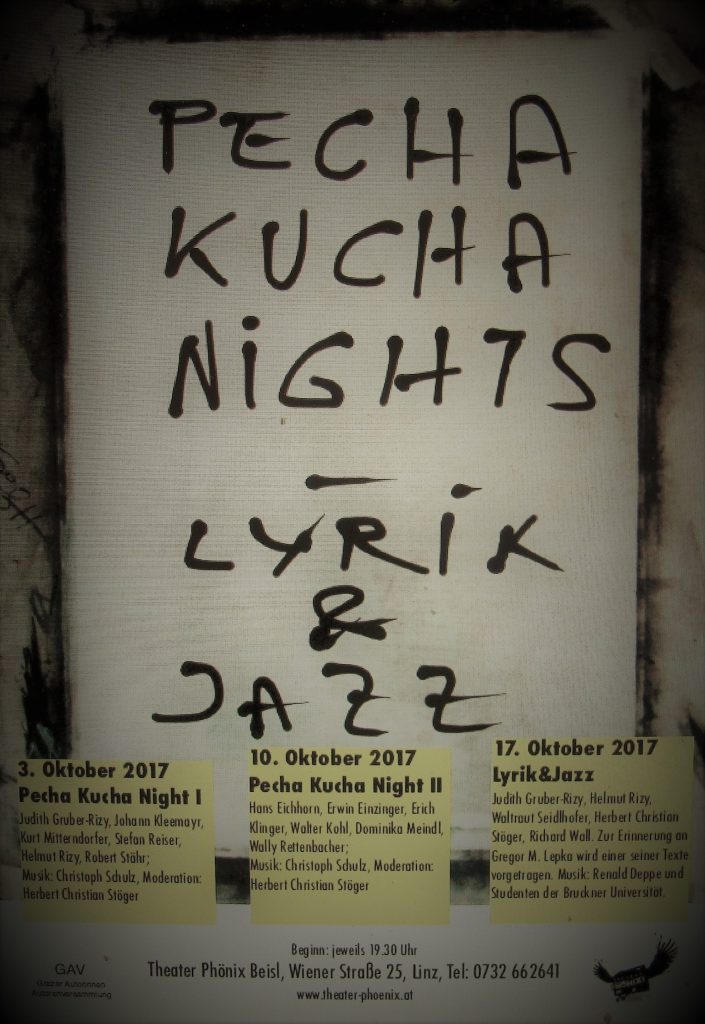 PECHA
KUCHA
NiGHTS
–
LYRiK
&
JAZZ
3. Oktober 2017
Pecha Kucha Night I
Judith Gruber-Rizy, Johann Kleemayr,
Kurt Mitterndorfer, Stefan Reiser,
Helmut Rizy, Robert Stähr;
Musik: Christoph Schulz, Moderation:
Herbert Christian Stöger
10. Oktober 2017
Pecha Kucha Night II
Hans Eichhorn, Erwin Einzinger, Erich
Klinger, Walter Kohl, Dominika Meindl,
Wally Rettenbacher;
Musik: Christoph Schulz, Moderation:
Herbert Christian Stöger
17. Oktober 2017
Lyrik&Jazz
Judith Gruber-Rizy, Helmut Rizy,
Waltraut Seidlhofer, Herbert Christian
Stöger, Richard Wall. Zur Erinnerung an
Gregor M. Lepka wird einer seiner Texte
vorgetragen. Musik: Renald Deppe und
Studenten der Bruckner Universität.
Beginn: jeweils 19.30 Uhr
Theater Phönix Beisl, Wiener Straße 25, Linz, Tel: 0732 662641
www.theater-phoenix.at
GAV
Grazer Autorinnen
Autorenversammlung